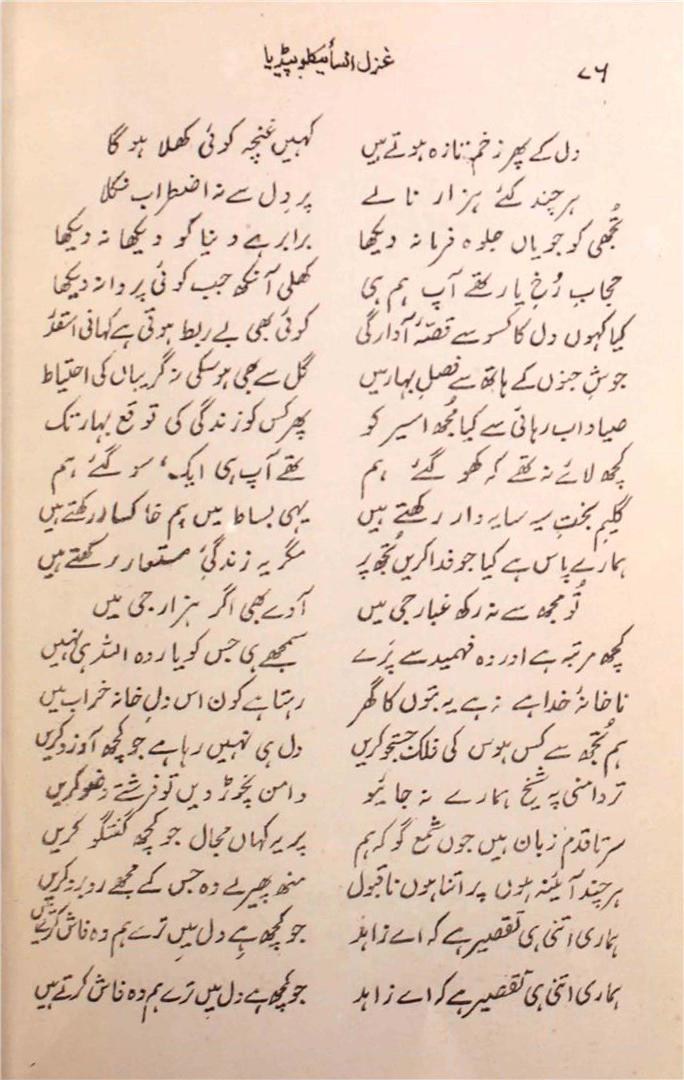 ۷۶ غزل انسائیکلوپیڈیا
دل کے پھر زخم تازہ ہوتے ہیں کہیں غنچہ کوئی کھلا ہو گا
ہر چند کئے ہزار نالے پر دل سے نہ اضطراب نکلا
تجھی کو جو یاں جلوہ فرما نہ دیکھا برابر ہے دنیا کو دیکھا نہ دیکھا
حجابِ رُخِ یار تھے آپ ہم ہی کھلی آنکھ جب کوئی پردا نہ دیکھا
کیا کہوں دل کا کسو سے قصّۂ آوارگی کوئی بھی بے ربط ہوتی ہے کہانی اسقدر
جوشِ جنوں کے ہاتھ سے فصلِ بہار میں گل سے بھی ہو سکی نہ گریباں کی احتیاط
صیاد اب رہائی سے کیا مجھ اسیر کو پھر کس کو زندگی کی توقع بہار تک
کچھ لائے نہ تھے کہ کھو گئے ہم تھے آپ ہی ایک، سو گئے ہم
گلیمِ بختِ سیہ سایہ دار رکھتے ہیں یہی بساط میں ہم خاکسار رکھتے ہیں
ہمارے پاس ہے کیا جو فدا کریں تجھ پر مگر یہ زندگیٔ مستعار رکھتے ہیں
تُو مجھ سے نہ رکھ غبار جی میں آوے بھی اگر ہزار جی میں
کچھ مرتبہ ہے اور وہ فہمید سے پرے سمجھے ہی جس کو یار وہ اللہ ہی نہیں
نا خانۂ خدا ہے نہ ہے یہ بتوں کا گھر رہتا ہے کون اس دلِ خانہ خراب میں
ہم تجھ سے کس ہوس کی فلک جستجو کریں دل ہی نہیں رہا ہے جو کچھ آرزو کریں
تر دامنی پہ شیخ ہمارے نہ جائیو دامن نچوڑ دیں تو فرشتے وضو کریں
سر تا قدم زبان ہیں جوں شمع گو کہ ہم پر یہ کہاں مجال جو کچھ گفتگو کریں
ہر چند آئینہ ہوں پر اتنا ہوں ناقبول منھ پھیر لے وہ جس کے مجھے روبرو کریں
ہماری اتنی ہی تقصیر ہے کہ اے زاہد جو کچھ ہے دل میں ترے ہم وہ فاش کرتے ہیں
ہماری اتنی ہی تقصیر ہے کہ اے زاہد جو کچھ ہے دل میں ترے ہم وہ فاش کرتے ہیں